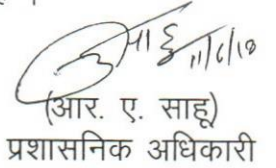 साहू 11/6/18
(आर. ए. साहू)
प्रशासनिक अधिकारी